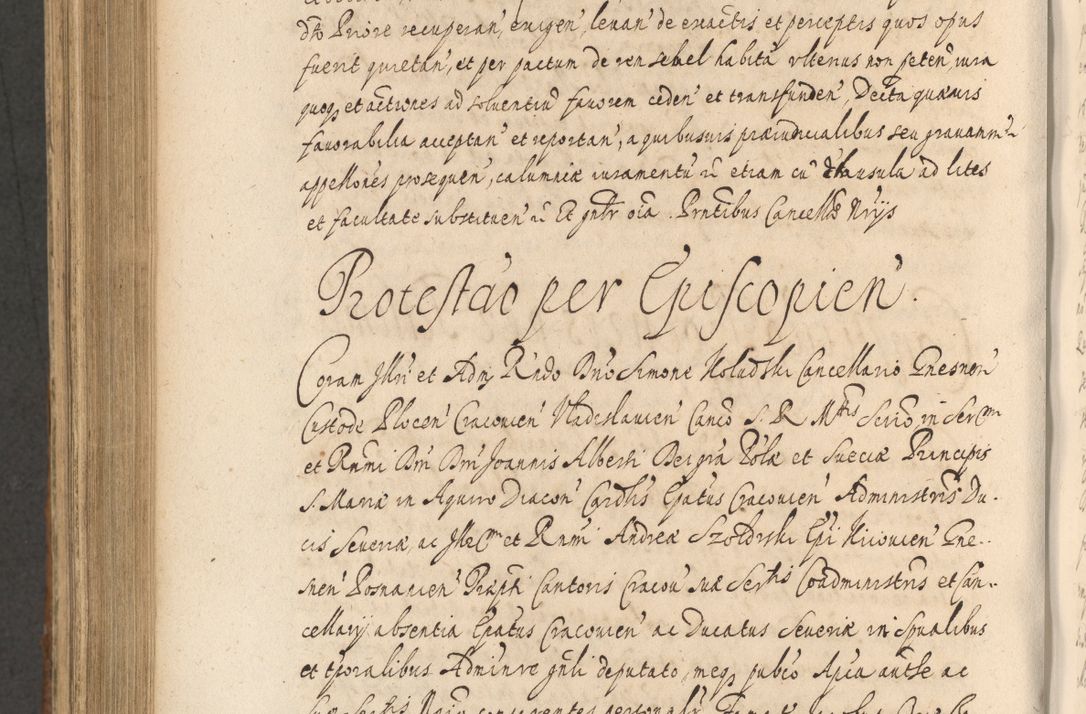 dto Priore recuperan', exigen', levan' de exactis et perceptis quos opus
fuerit quietan', et per pactum de ren semel habita ulterius non peten' iura
quoq et actiones ad solventiu favorem ceden' et transfunden', Decta quævis
favorabilia acceptan' et reportan', a quibusvis præiudicialibus seu gravam
appellones prosequen', calumniæ iuramentu et etiam cu clausula ad lites
et facultate substituen' Et gnlr oia. Prntibus Cancellæ Nrijs
Protestao per Episcopien'.
Coram Illri et Adm Rndo Dno Simone Koludski Cancellario Gnesnen'
Custode Plocen' Cracovien' Vladislavien' Canco S. R. Mttis Secrio in Sermi
et Rnmi Dni Dni Joannis Alberti Dei gra Polæ et Sueciæ Principis
S. Mariæ in Aquiro Diacon' Cardlis Epatus Cracovien' Administris Du-
cis Severiæ, ac Illrmi et Rnmi Andreæ Szołdrski Epi Kiiovien' Gne-
snen' Posnanien' Præpti Cantoris Cracov' suæ Sertis Coadministris et Can-
cellarij absentia Epatus Cracovien' ac Ducatus Severiæ in spualibus
et tporalibus Adminre gnli deputato, meq publco Aplca authe ac
suæ Sertis Nrio